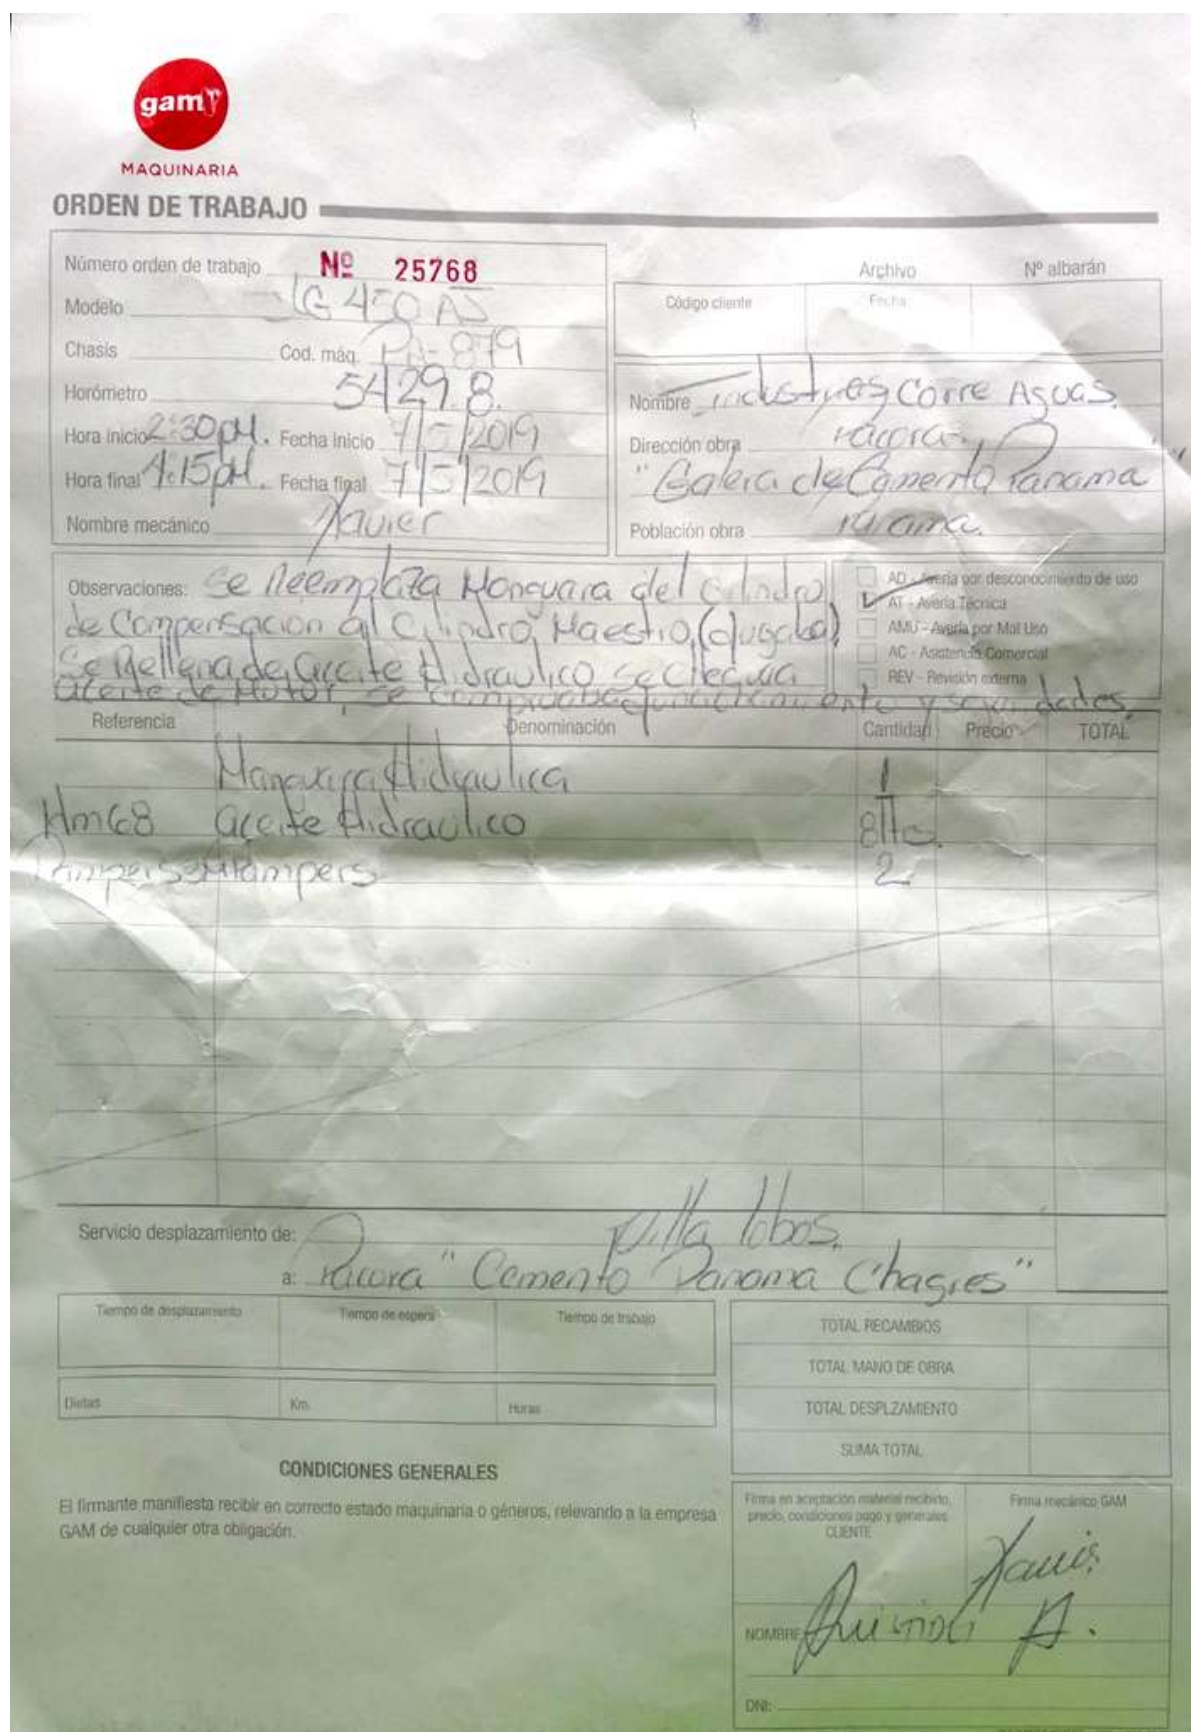 gam
MAQUINARIA
ORDEN DE TRABAJO
Número orden de trabajo Nº 25768
Modelo JLG 450 AJ
Chasis Cod. máq. PA-879
Horómetro 5429.8.
Hora inicio 2:30pM. Fecha inicio 7/5/2019
Hora final 4:15pM. Fecha final 7/5/2019
Nombre mecánico Xavier
Archivo Nº albarán
Código cliente Fecha
Nombre industries Corre Aguas.
Dirección obra Pacora,
"Galera de Cemento Panama"
Población obra Panama.
Observaciones: Se Reemplaza Manguara del Cilindro
de Compensacion al Cilindro Maestro,
Se Rellena de aceite Hidraulico se Chequia
aceite de Motor, se comprueba funcionamiento y seguridades.
AD - Avería por desconocimiento de uso
AT - Avería Técnica
AMU - Avería por Mal Uso
AC - Asistencia Comercial
REV - Revisión externa
Referencia Denominación Cantidad Precio TOTAL
Manguera Hidraulica 1
Hm68 aceite Hidraulico 8lts.
Pampers Pampers 2
Servicio desplazamiento de: Villa lobos.
a: Pacora "Cemento Panama Chagres"
Tiempo de desplazamiento Tiempo de espera Tiempo de trabajo
Dietas Km. Horas
TOTAL RECAMBIOS
TOTAL MANO DE OBRA
TOTAL DESPLZAMIENTO
SUMA TOTAL
CONDICIONES GENERALES
El firmante manifiesta recibir en correcto estado maquinaria o géneros, relevando a la empresa
GAM de cualquier otra obligación.
Firma en aceptación material recibido,
precio, condiciones pago y generales
CLIENTE
Firma mecánico GAM
Xavier
NOMBRE A.
DNI: